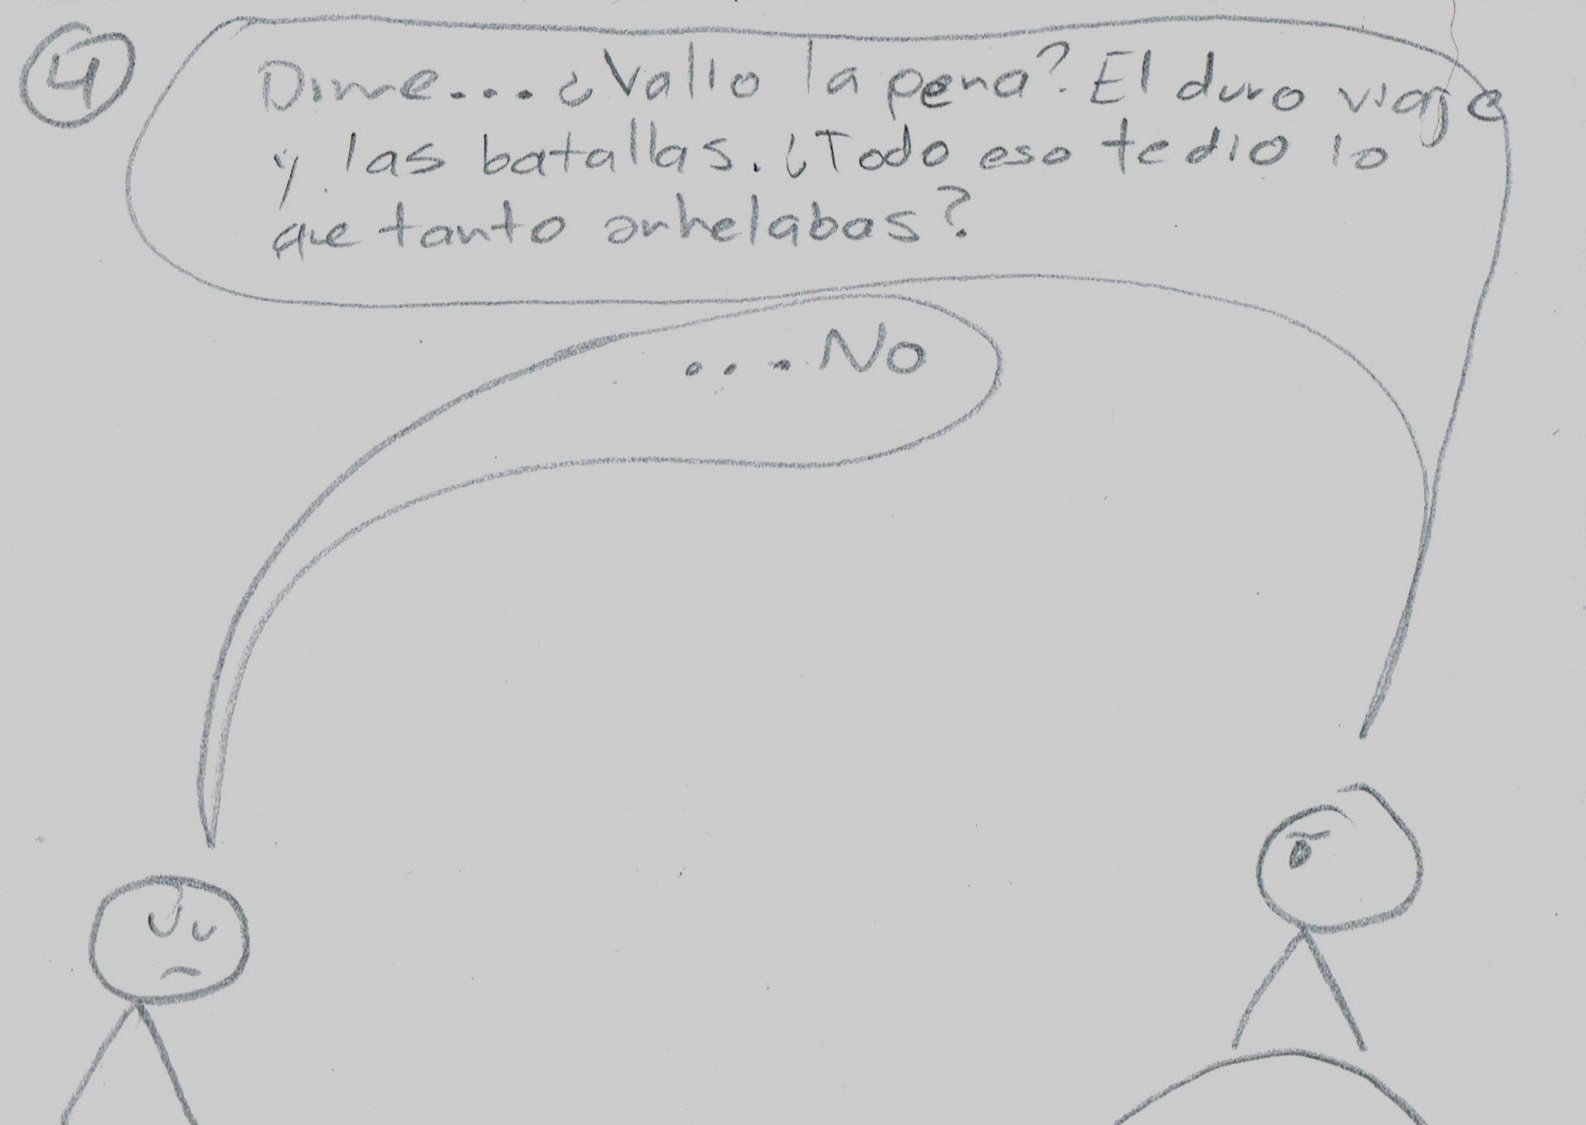 4
Dime... ¿Valio la pena? El duro viaje
y las batallas. ¿Todo eso te dio lo
que tanto anhelabas?
...No